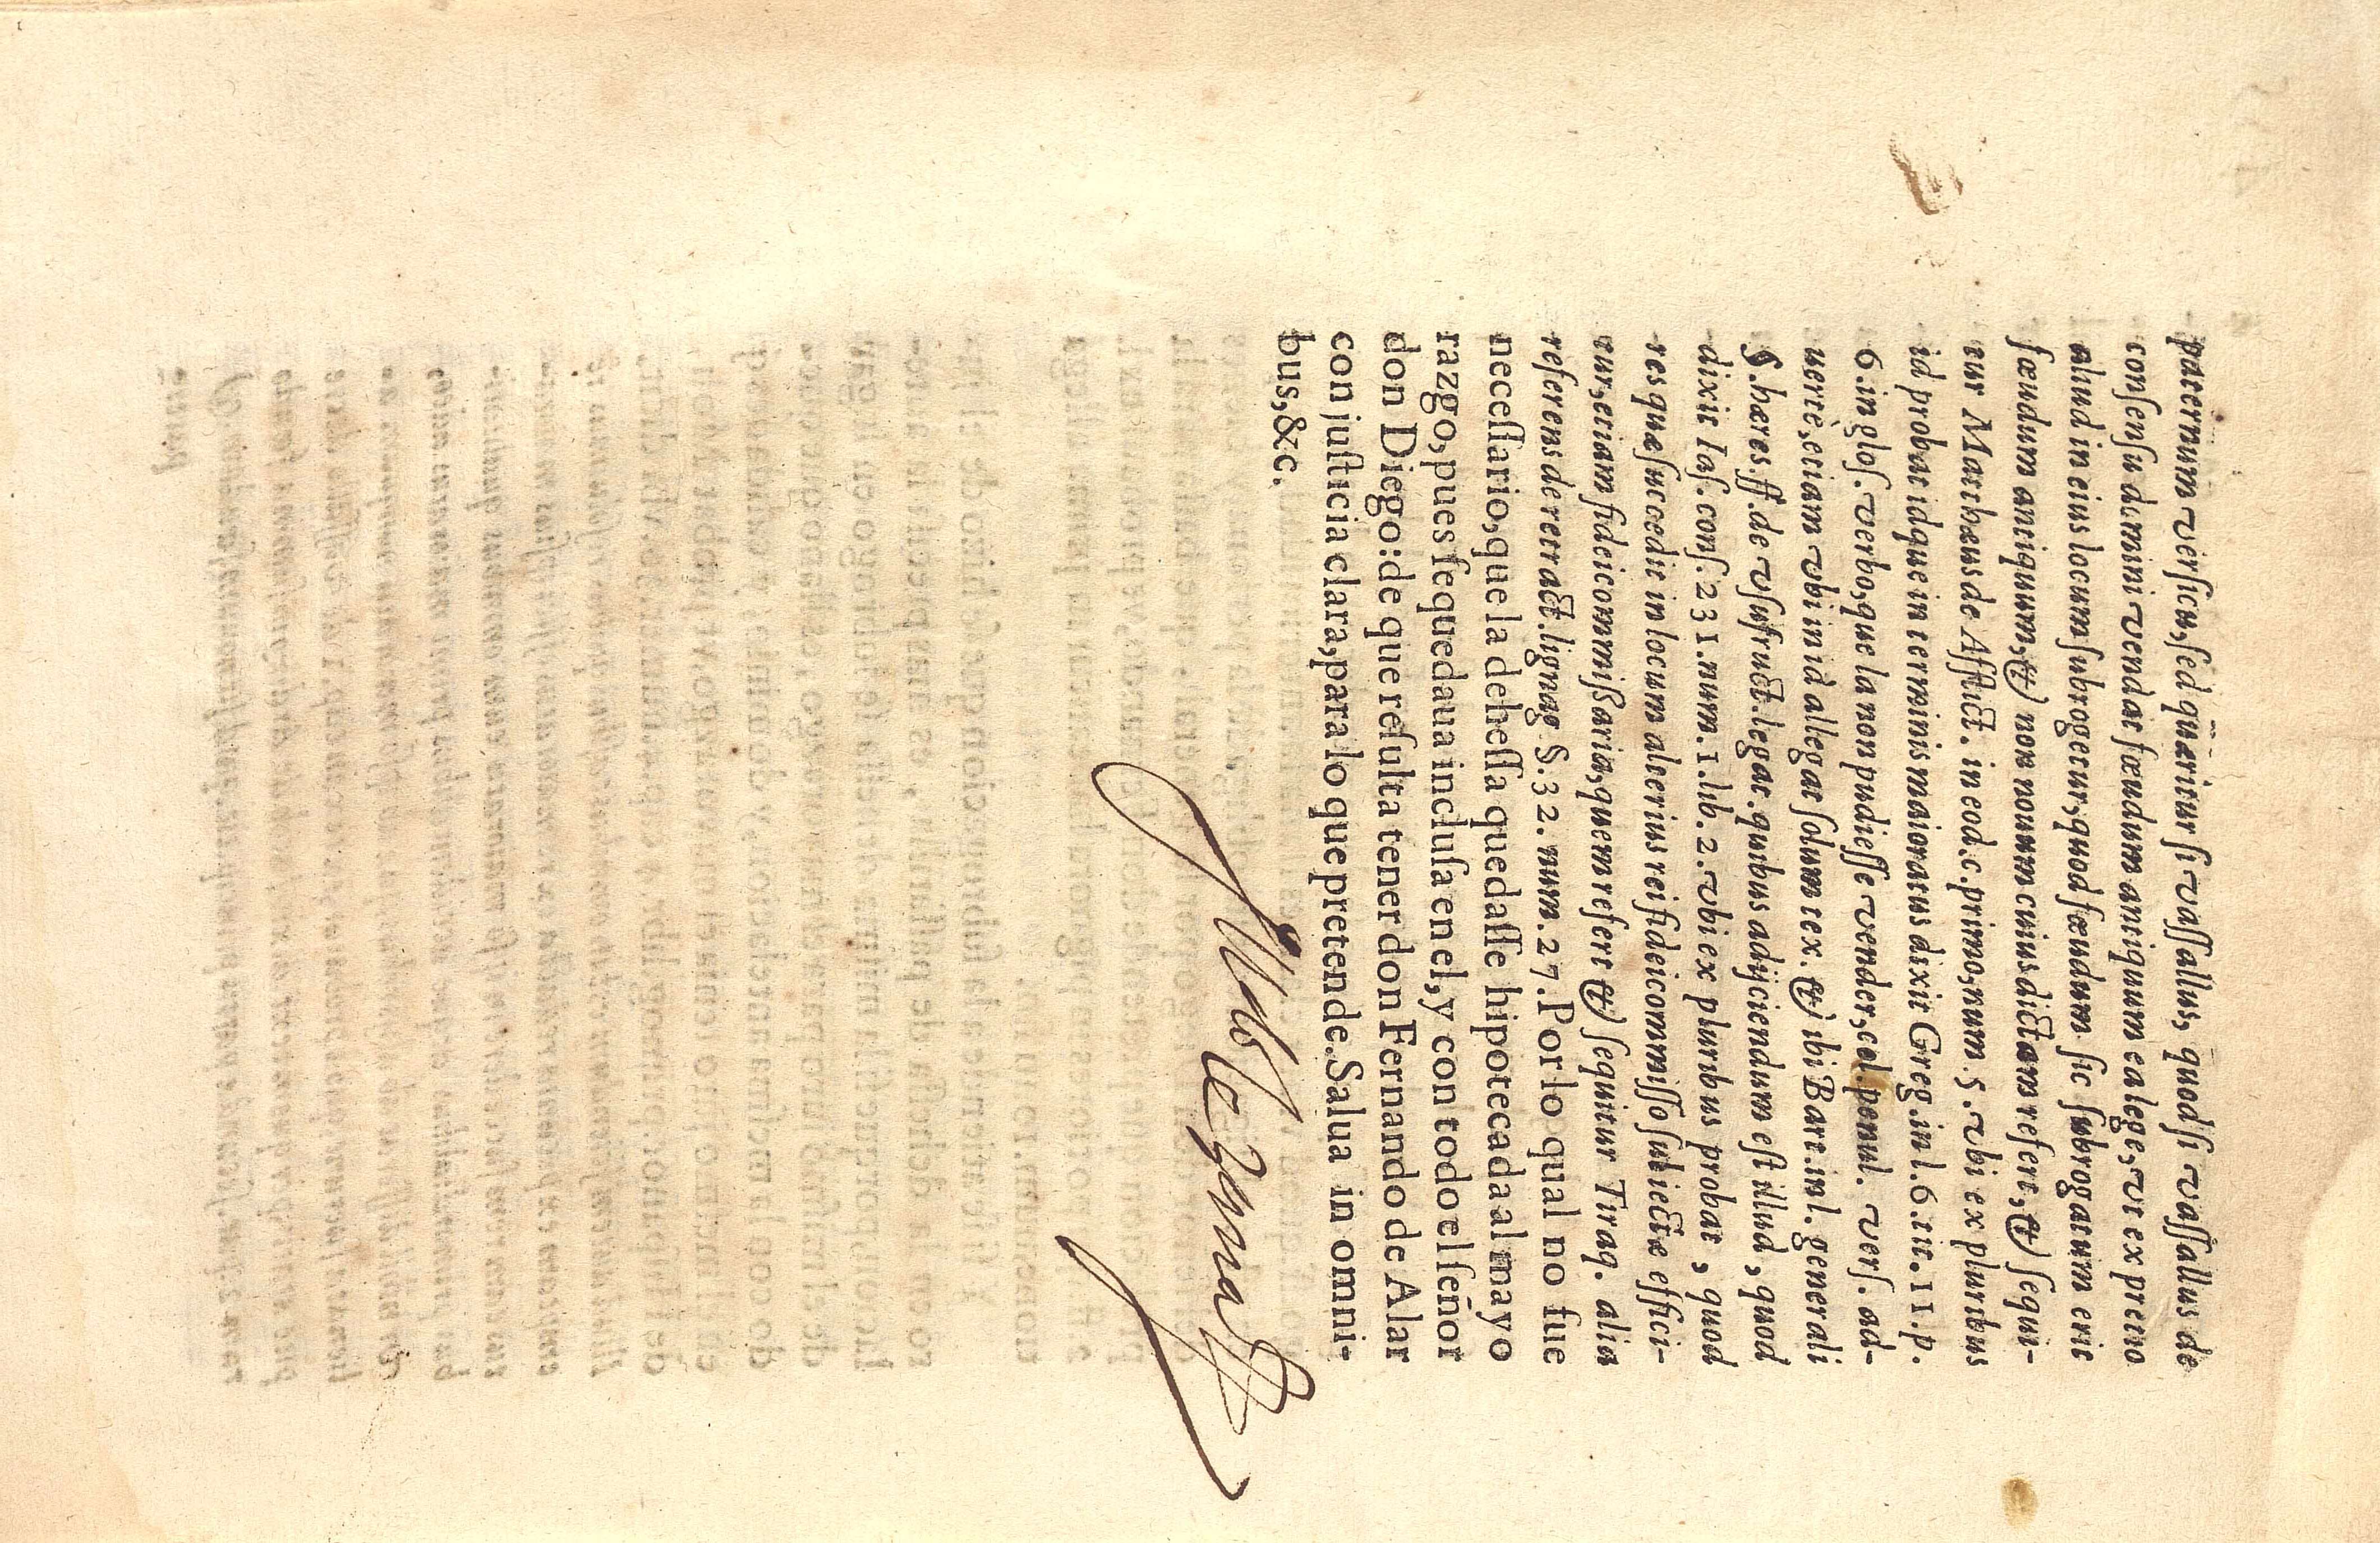 paternum versicu, sed quæritur si vassallus, quod si vassallus de
consensu domini vendat fœudum antiquum ea lege, vt ex pretio
aliud in eius locum subrogetur, quod fœudum sic subrogatum erit
fœudum antiquum, & non nouum cuius dictams refert, & sequi-
tur Matthæus de Afflict. in eod. c. primo, num. 5. vbi ex pluribus
id probat idque in terminis maioratus dixit Greg. in l. 6. tit. 11. p.
6. in glos. verbo, que la non pudiesse vender, col. penul. vers. ad-
uerte, etiam vbi in id allegat solum tex. & ibi Bart. in l. generali
§. hæres ff. de vsufruct. legat. quibus adijciendum est illud, quod
dixit Ias. cons. 231. num. 1. lib. 2. vbi ex pluribus probat, quod
res quæ succedit in locum alterius rei fideicommisso subiectæ effici-
tur, etiam fideicommissaria, quem refert & sequitur Tiraq. alia
referens de retract. lignag §. 32. num. 27. Por lo qual no fue
necessario, que la dehessa quedasse hipotecada al mayo
razgo, pues se quedaua inclusa en el, y con todo el señor
don Diego: de que resulta tener don Fernando de Alar
con justicia clara, para lo que pretende. Salua in omni-
bus, &c.